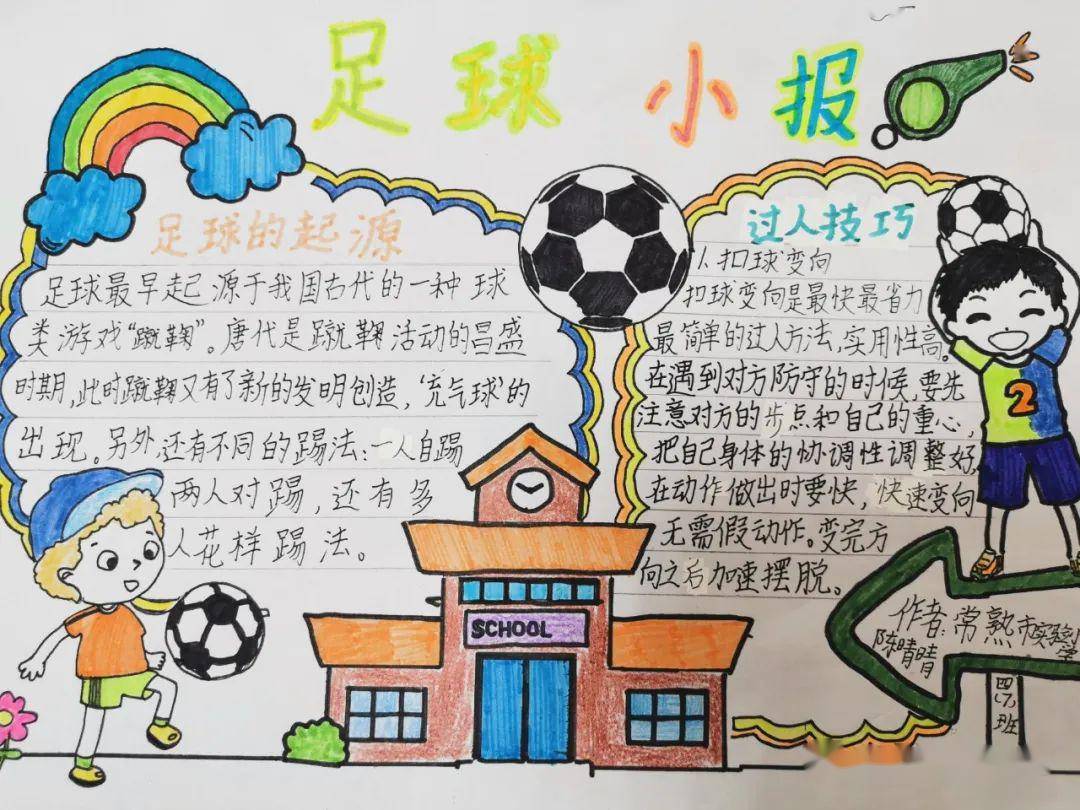 足球小报
足球的起源
足球最早起源于我国古代的一种球
类游戏“蹴鞠”。唐代是蹴鞠活动的昌盛
时期,此时蹴鞠又有了新的发明创造,‘充气球’的
出现。另外,还有不同的踢法:一人自踢
两人对踢,还有多
人花样踢法。
过人技巧
1.扣球变向
扣球变向是最快最省力
最简单的过人方法,实用性高。
在遇到对方防守的时候,要先
注意对方的步点和自己的重心,
把自己身体的协调性调整好,
在动作做出时要快,快速变向
无需假动作。变完方
向之后加速摆脱。
2
SCHOOL
作者:常熟市实验小学
陈晴晴
四(7)班